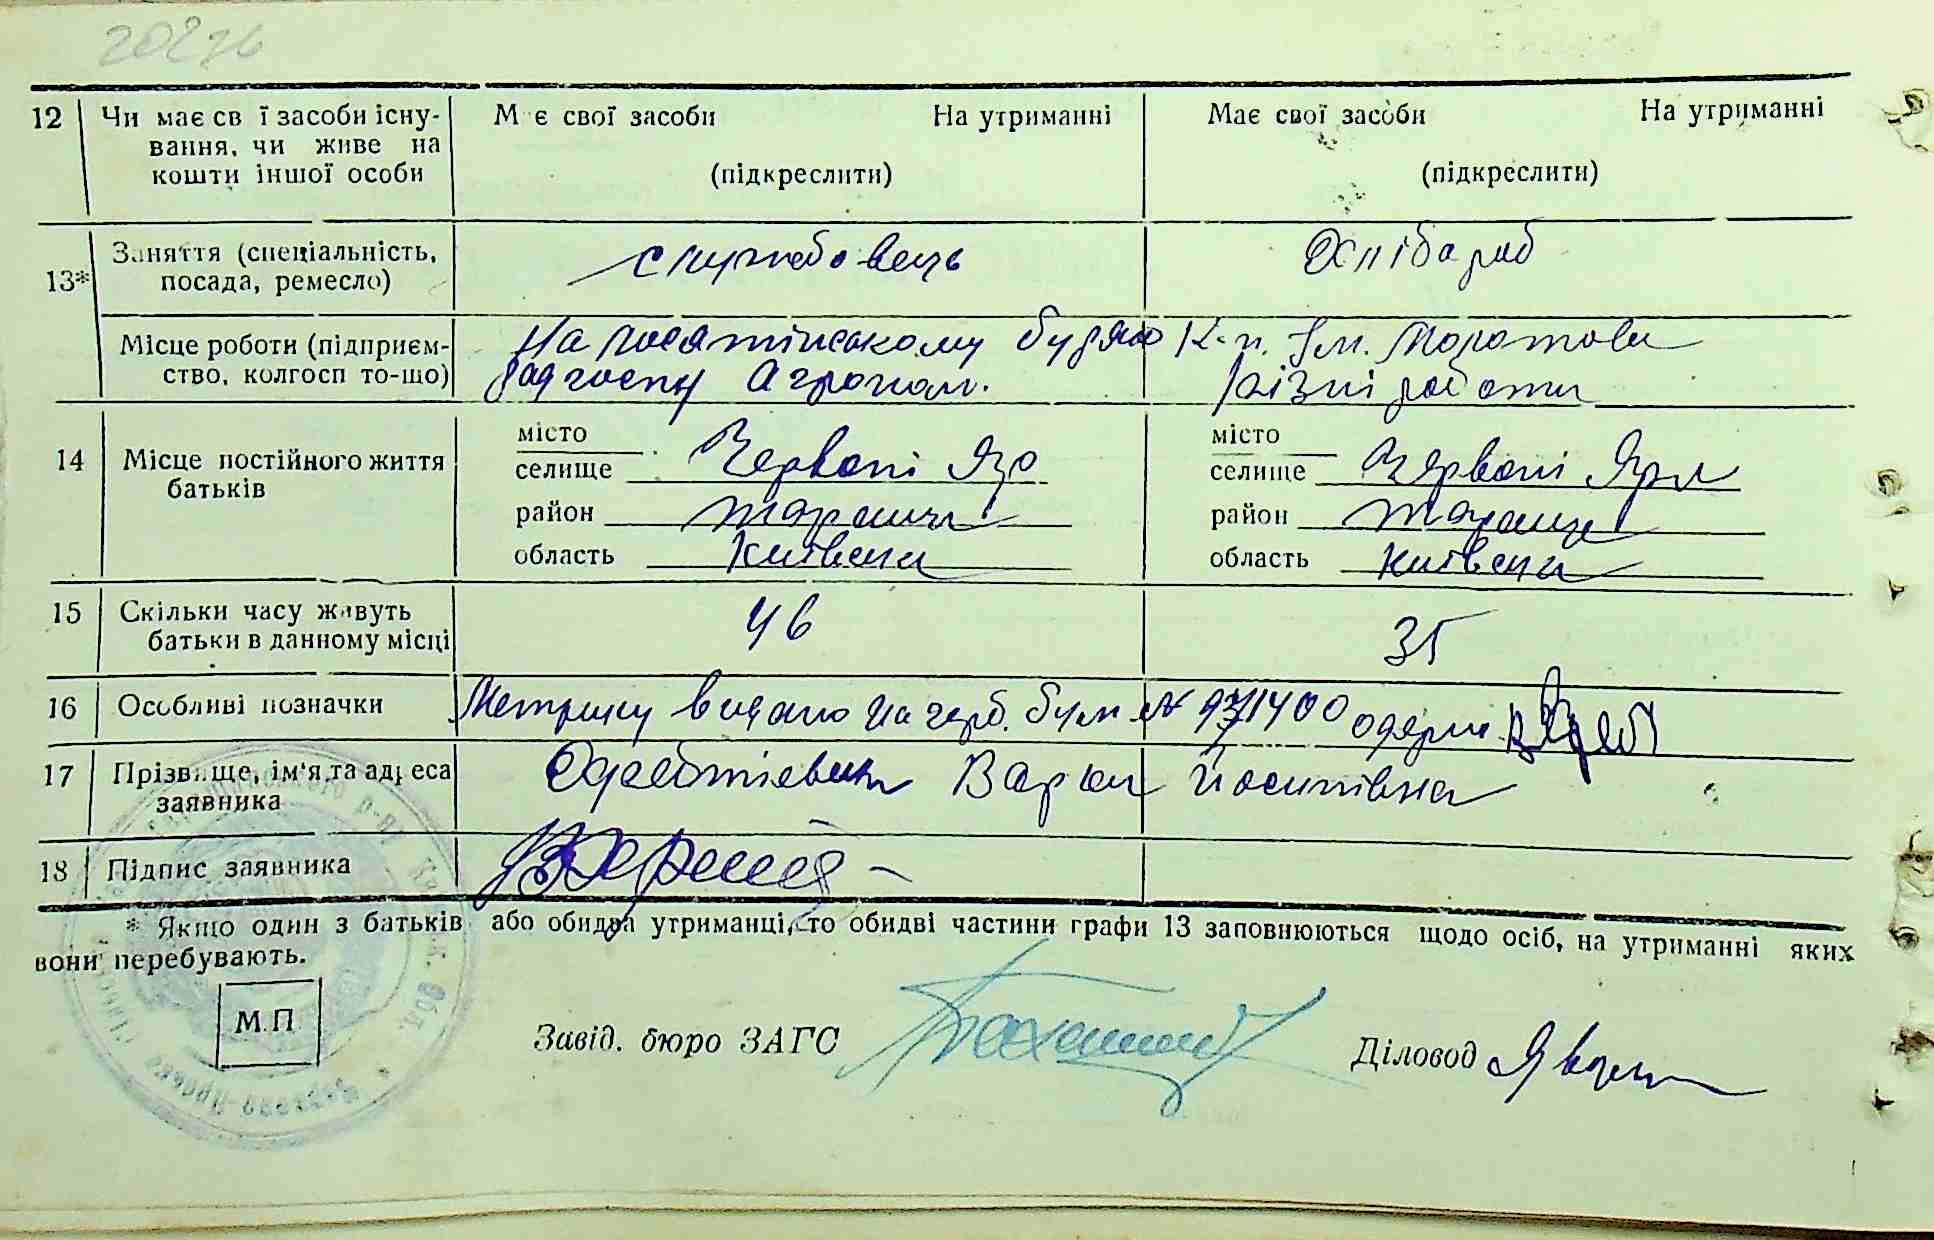 12 Чи має св ї засоби існу- М є свої засоби На утриманні Має свої засоби На утриманні
вання, чи живе на
кошти іншої особи (підкреслити) (підкреслити)
13* Заняття (спеціальність, службовець Хлібороб
посада, ремесло)
Місце роботи (підприєм- На К. п. ім. Молотова
ство, колгосп то-що) радгоспу Агроном. Різні роботи
14 Місце постійного життя місто місто
батьків селище Червоні Яро селище Червоні Яри
район Таращі район Тараще
область Київська область Київська
15 Скільки часу живуть 46 35
батьки в данному місці
16 Особливі позначки Метрику видано на герб. бум №
17 Прізвище, ім'я та адреса Варка Йосипівна
заявника
18 Підпис заявника
* Якщо один з батьків або обидва утриманці, то обидві частини графи 13 заповнюються щодо осіб, на утриманні яких
вони перебувають.
М.П
Завід. бюро ЗАГС Діловод